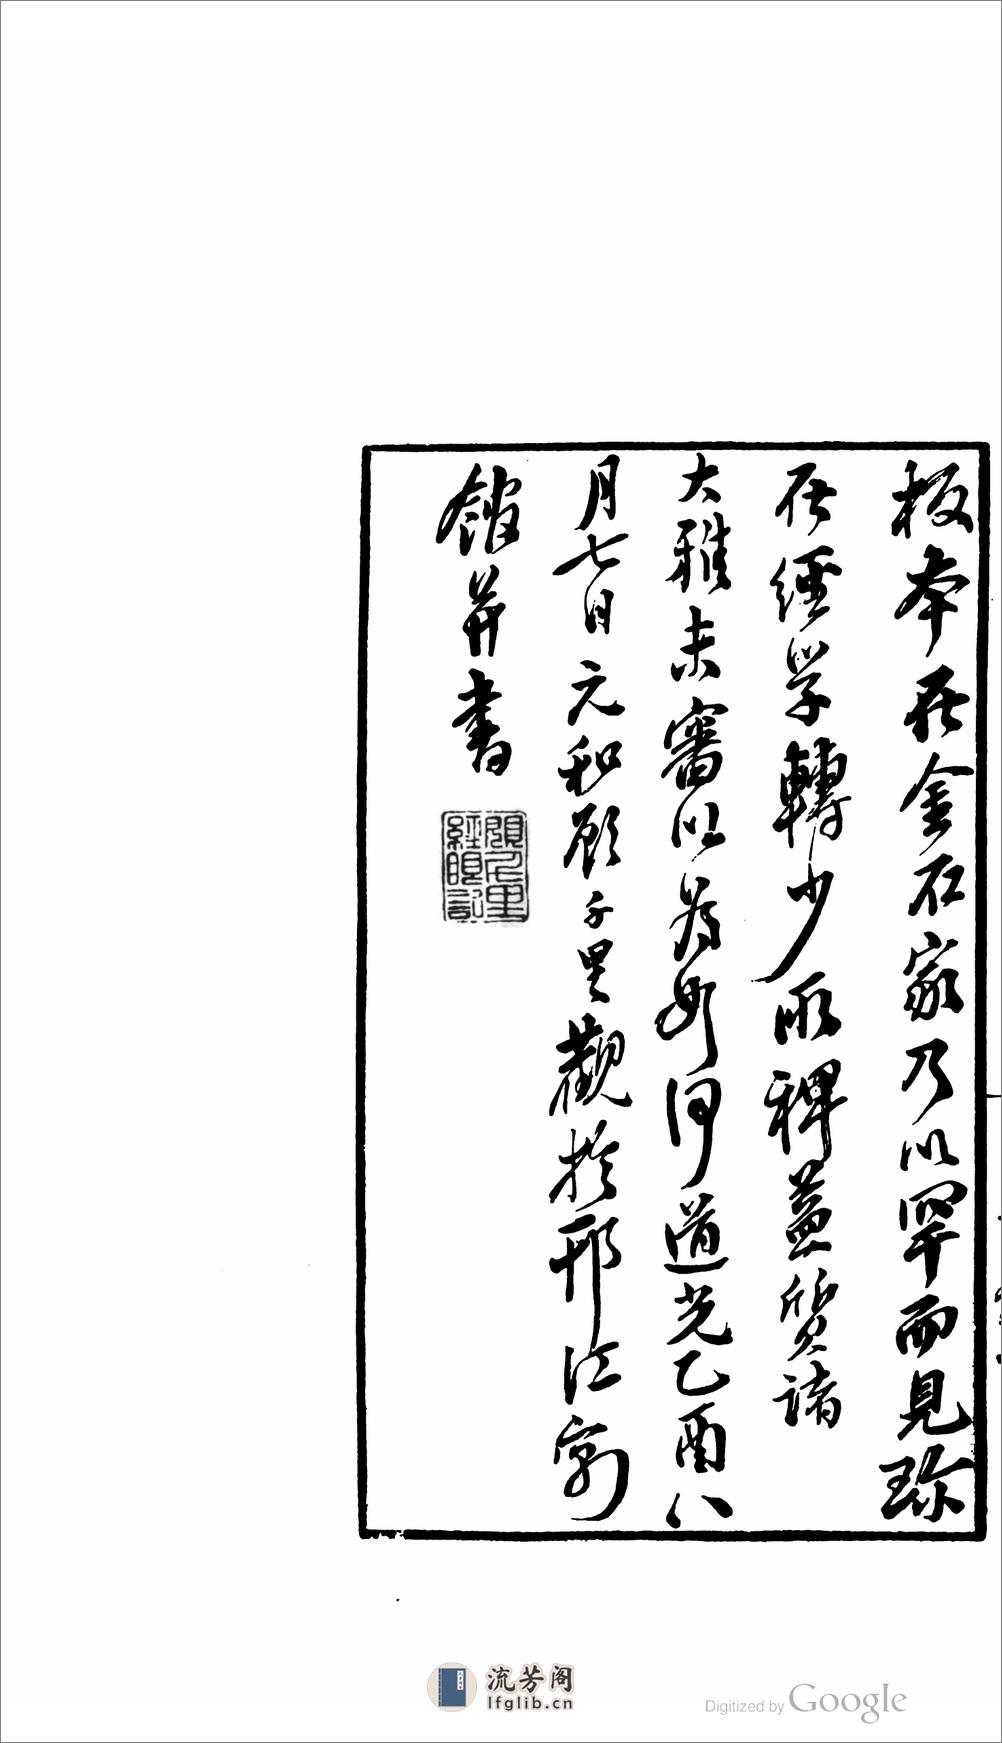 板本在金石家乃以罕而見珍
在經學轉少所稗益質諸
大雅未審以為如何道光乙酉八
月七日元和顧千里觀於邗江寓
館并書
顧千里
經眼記
流芳阁
lfglib.cn
Digitized by Google